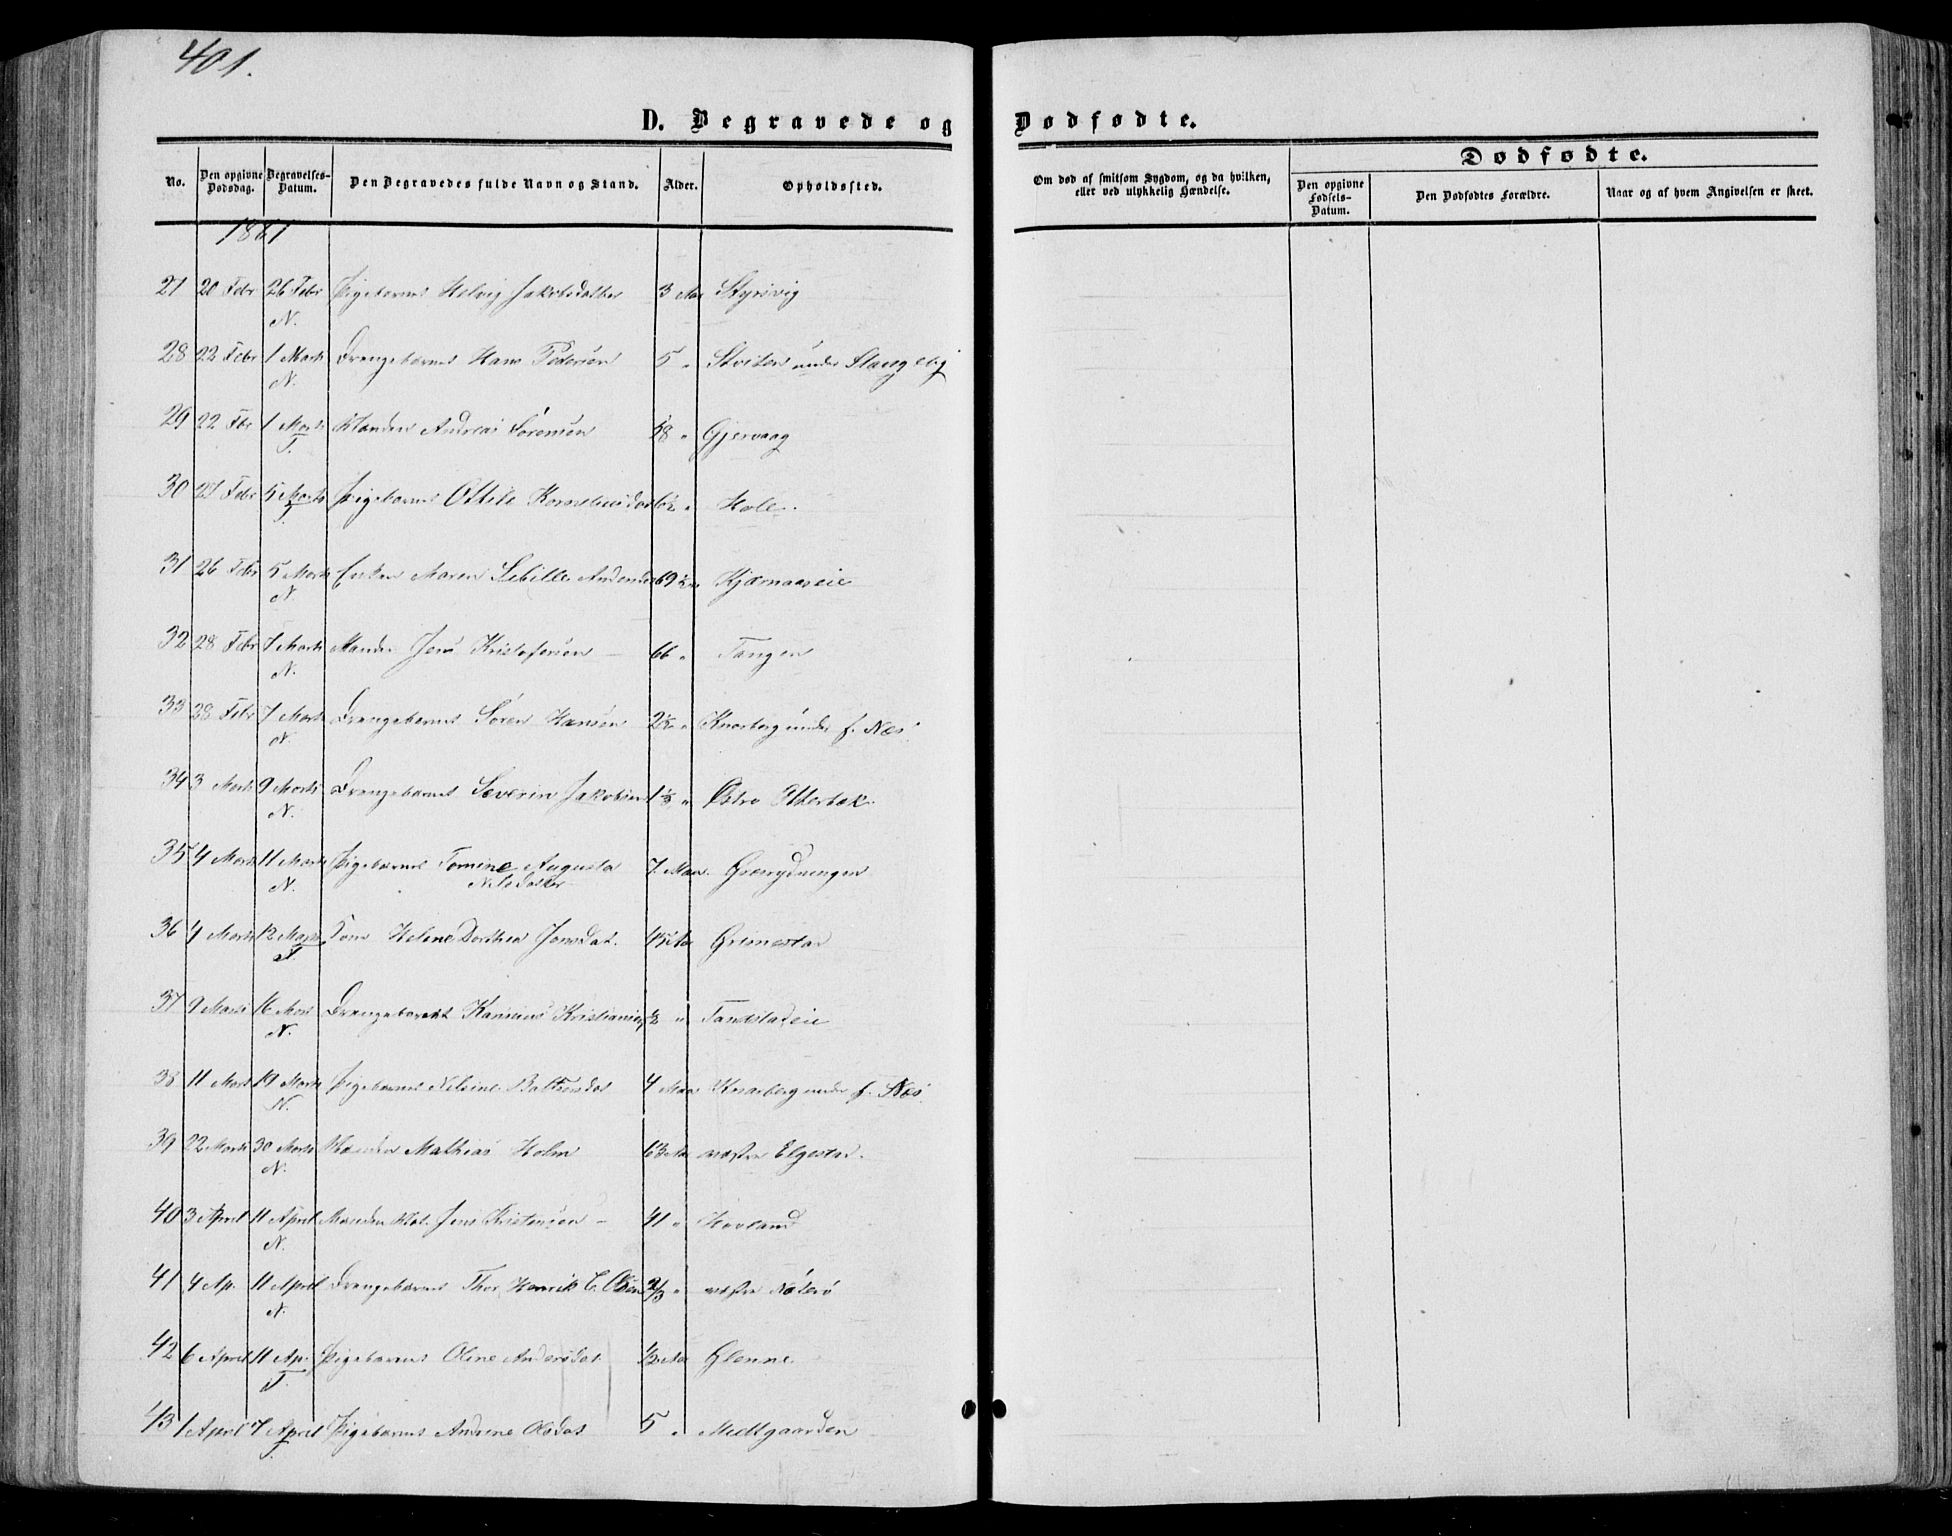 401.
D. Begravede og Dødfødte.
No. Den opgivne Dødsdag. Begravelses-Datum. Den Begravedes fulde Navn og Stand. Alder. Opholdssted. Om død af smitsom Sygdom, og da hvilken, eller ved ulykkelig Hændelse. Dødfødte.
Den opgivne Fødsels-Datum. Den Dødfødtes Forældre. Naar og af hvem Angivelsen er skeet.
1861
27 20 Febr 26 Febr Pigebarnet Helvig Jakobsdatter 3 Aar
N.
28 22 Febr 1 Marts Drengebarnet Hans Pedersøn 5 " under
N.
29 22 Fbr 1 Marts Manden Andreas Sørensøn 58 " Gjervaag
T.
30 27 Febr 5 Marts Pigebarnet Ottile Holle
T.
31 26 Febr 5 Marts Enken Maren Sibille 69 ½ Kjærnaaseie
N.
32 28 Febr 7 Marts Manden Jens Kristofersøn 66 " Tangen
N.
33 28 Febr 7 Marts Drengebarnet Søren Hansøn 2½ " Knarberg under f. Næs
N.
34 3 Marts 9 Marts Drengebarnet Severin Jakobsen " Østre Otterbæk
N.
35 4 Marts 11 Marts Pigebarnet Tomine Augusta 7 Maan. Grærydningen
N. Nilsdatter
36 4 Marts 12 Marts Kone Helene Dorthea Jonsdat. 45 Aar Grimestad
T.
37 9 Marts 16 Mars Drengebarnet Hansius ½ "
N.
38 11 Marts 19 Marts Pigebarnet Nilsine 4 Maan Knarberg under f. Næs
N.
39 22 Marts 30 Marts Manden Mathias Holm 63 Aar vestre Elgestad.
N.
40 3 April 11 April Manden Jens Kristensøn 41 " Hovland
N.
41 4 Ap. 11 April Drengebarnet Thor Henrik C. Olsen 2/3 " vestre Nøterø
N.
42 6 April 11 Ap. Pigebarnet Oline Andersdat. ½ Aar Glenne.
T.
43 1 April 7 April Pigebarnet Andrine Olsdat 5 " Medtgaarden
T.